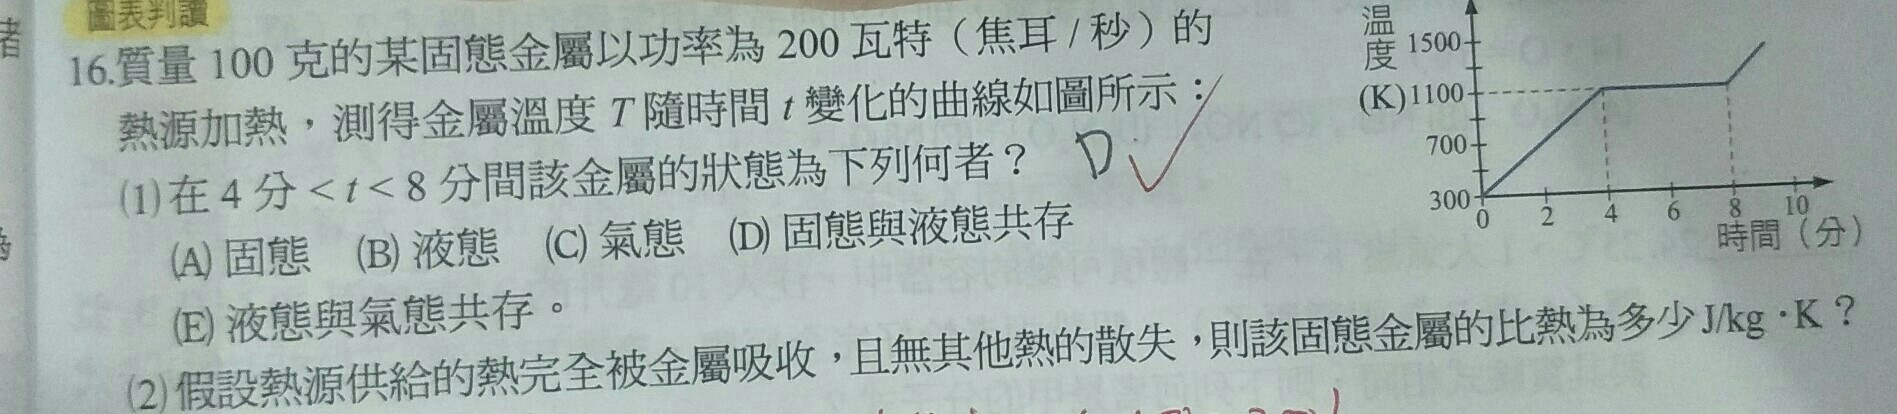 圖表判讀
16.質量 100 克的某固態金屬以功率為 200 瓦特（焦耳/秒）的
熱源加熱，測得金屬溫度 T 隨時間 t 變化的曲線如圖所示：
(1)在 4 分 < t < 8 分間該金屬的狀態為下列何者？ D
(A) 固態 (B) 液態 (C) 氣態 (D) 固態與液態共存
(E) 液態與氣態共存。
(2)假設熱源供給的熱完全被金屬吸收，且無其他熱的散失，則該固態金屬的比熱為多少 J/kg·K？
温度(K)
1500
1100
700
300
0 2 4 6 8 10
時間（分）